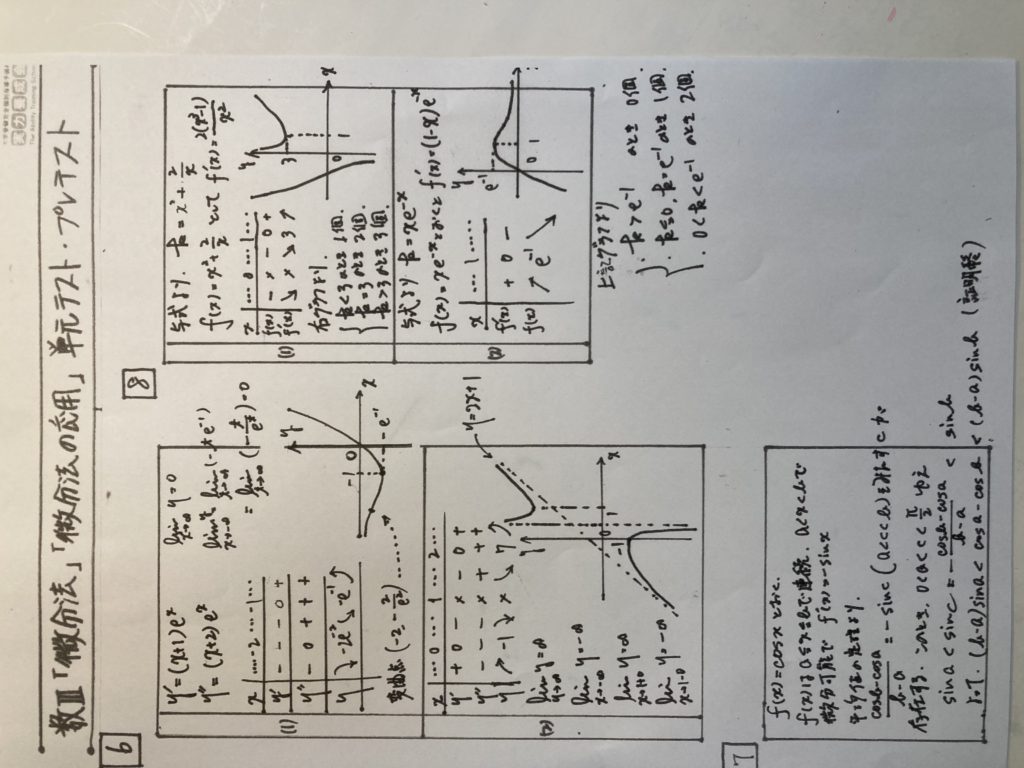 数Ⅲ「微分法」「微分法の応用」単元テスト・プレテスト
The Ability Training School
6
(1)
y'=(x+1)e^x
y''=(x+2)e^x
x …-2…-1…
y' - - - 0 +
y'' - 0 + + +
y -2e^-2 -e^-1
変曲点(-2, -2/e^2)
lim y=0
x→-∞
-1 0 x
y
-e^-1
(2)
x …0…1…2…
y' + 0 - × - 0 +
y'' - - - × + + +
y ↗ -1 ↘ × ↘ 7 ↗
lim y=∞
x→∞
lim y=-∞
x→-∞
lim y=∞
x→1+0
lim y=-∞
x→1-0
y=3x+1
y
-1
0
x
7
f(x)=cosxとおく.
f(x)はa≦x≦bで連続, a<x<bで
微分可能で f'(x)=-sinx
平均値の定理より,
(cosb-cosa)/(b-a) = -sinc (a<c<b)を満たすcが
存在する. ゆえ
sina < sinc = -(cosb-cosa)/(b-a) < sinb
よって, (b-a)sina < cosa-cosb < (b-a)sinb (証明終)
8
(1)
与式より, k=x^2+2/x
f(x)=x^2+2/x として f'(x)=2(x^3-1)/x^2
x …0…1…
f'(x) - × - 0 +
f(x) ↘ × ↘ 3 ↗
右グラフより,
k<3のとき1個.
k=3のとき2個.
k>3のとき3個.
y
3
0 1 x
(2)
与式より k=xe^-x
f(x)=xe^-xとおくと f'(x)=(1-x)e^-x
x …1……
f'(x) + 0 -
f(x) ↗ e^-1 ↘
y
e^-1
0 1
上記グラフより
・k>e^-1 のとき 0個.
・k≦0, k=e^-1のとき 1個.
・0<k<e^-1 のとき 2個.